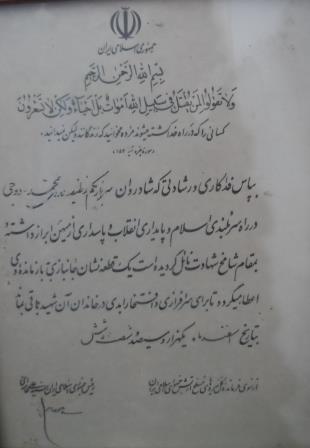 جمهوری اسلامی ایران
بسم الله الرحمن الرحیم
ولا تقولوا لمن یقتل فی سبیل الله اموات بل احیاء ولکن لا تشعرون
کسانی را که در راه خدا کشته میشوند مرده نخوانید که زنده‌اند ولیکن شما نمیدانید.
سوره بقره آیه ۱۵۴
بپاس فداکاری و رشادتی که شادروان سرباز یکم وظیفه محمد دوجی
در راه سربلندی اسلام و پایداری انقلاب و پاسداری از میهن ابراز داشته و
بمقام شامخ شهادت نائل گردیده است یک قطعه نشان جانبازی به بازمانده وی
اعطا میگردد تا برای سرفرازی و افتخار ابدی در خاندان آن شهید باقی بماند
بتاریخ اسفند ماه یکهزار و سیصد و شصت و شش
رئیس جمهوری اسلامی ایران